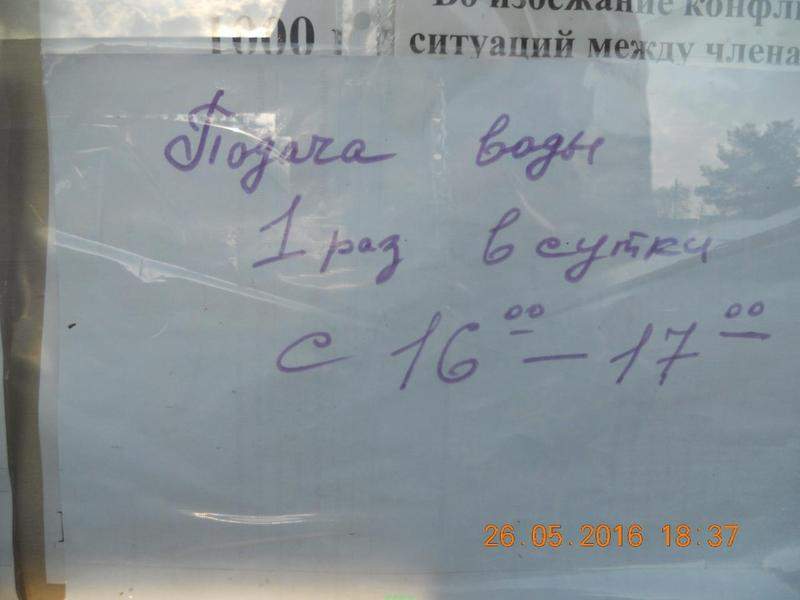 Во избежание
1000
ситуаций между
Подача воды
1 раз в сутки
с 16 00 — 17 00
26.05.2016 18:37